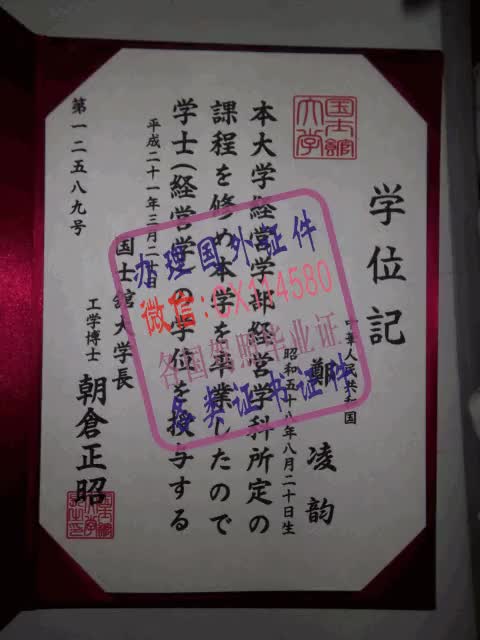 学位記
国士舘
大学
中華人民共和国
鄭 凌韵
昭和五十八年八月二十日生
本大学経営学部経営学科所定の
課程を修め本学を卒業したので
学士(経営学)の学位を授与する
平成二十一年三月二十日
国士舘大学長
工学博士 朝倉正昭
第一二五八九号
办理国外证件
微信:CX114580
各国驾照毕业证
各类证书证件